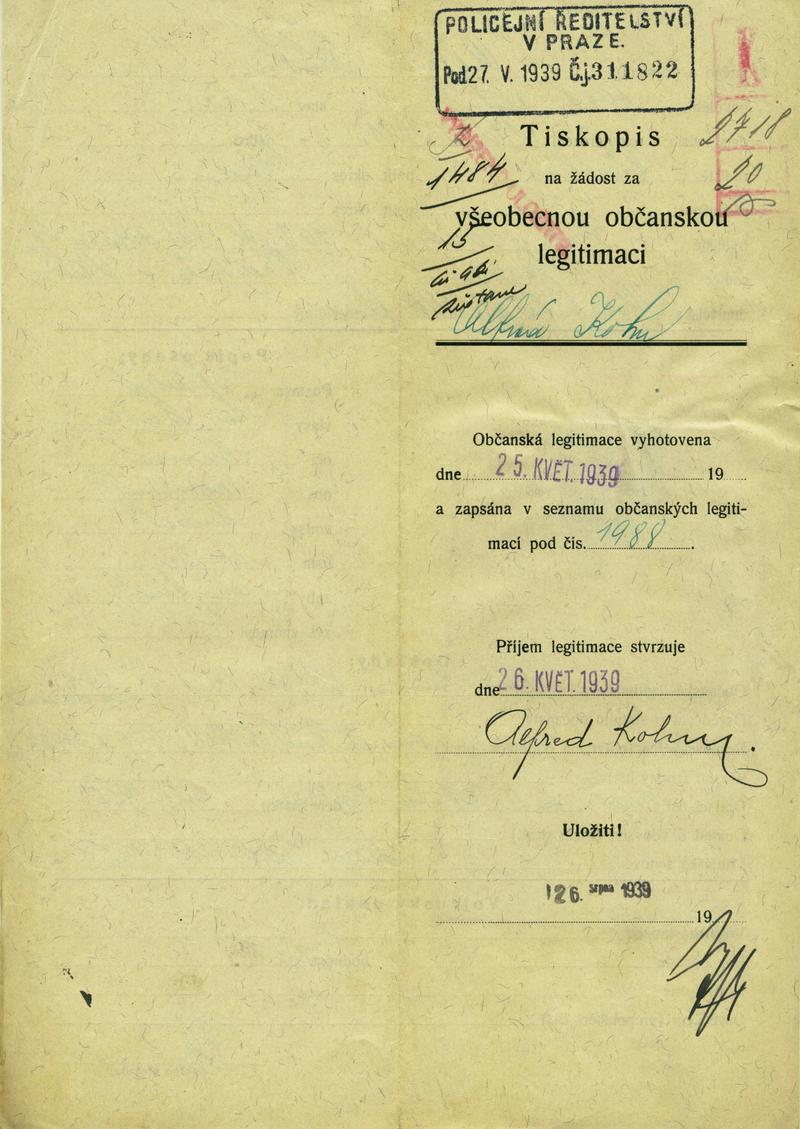 POLICEJNÍ ŘEDITELSTVÍ
V PRAZE.
Pod 27. V. 1939 Č.j. 311822
Tiskopis
2718
1484
na žádost za
20
všeobecnou občanskou
15
legitimaci
Alfred Kohn
Občanská legitimace vyhotovena
dne 25. KVĚT. 1939 19
a zapsána v seznamu občanských legiti-
mací pod čís. 1988.
Příjem legitimace stvrzuje
dne 26. KVĚT. 1939
Alfred Kohn.
Uložiti!
26. srpna 1939
19